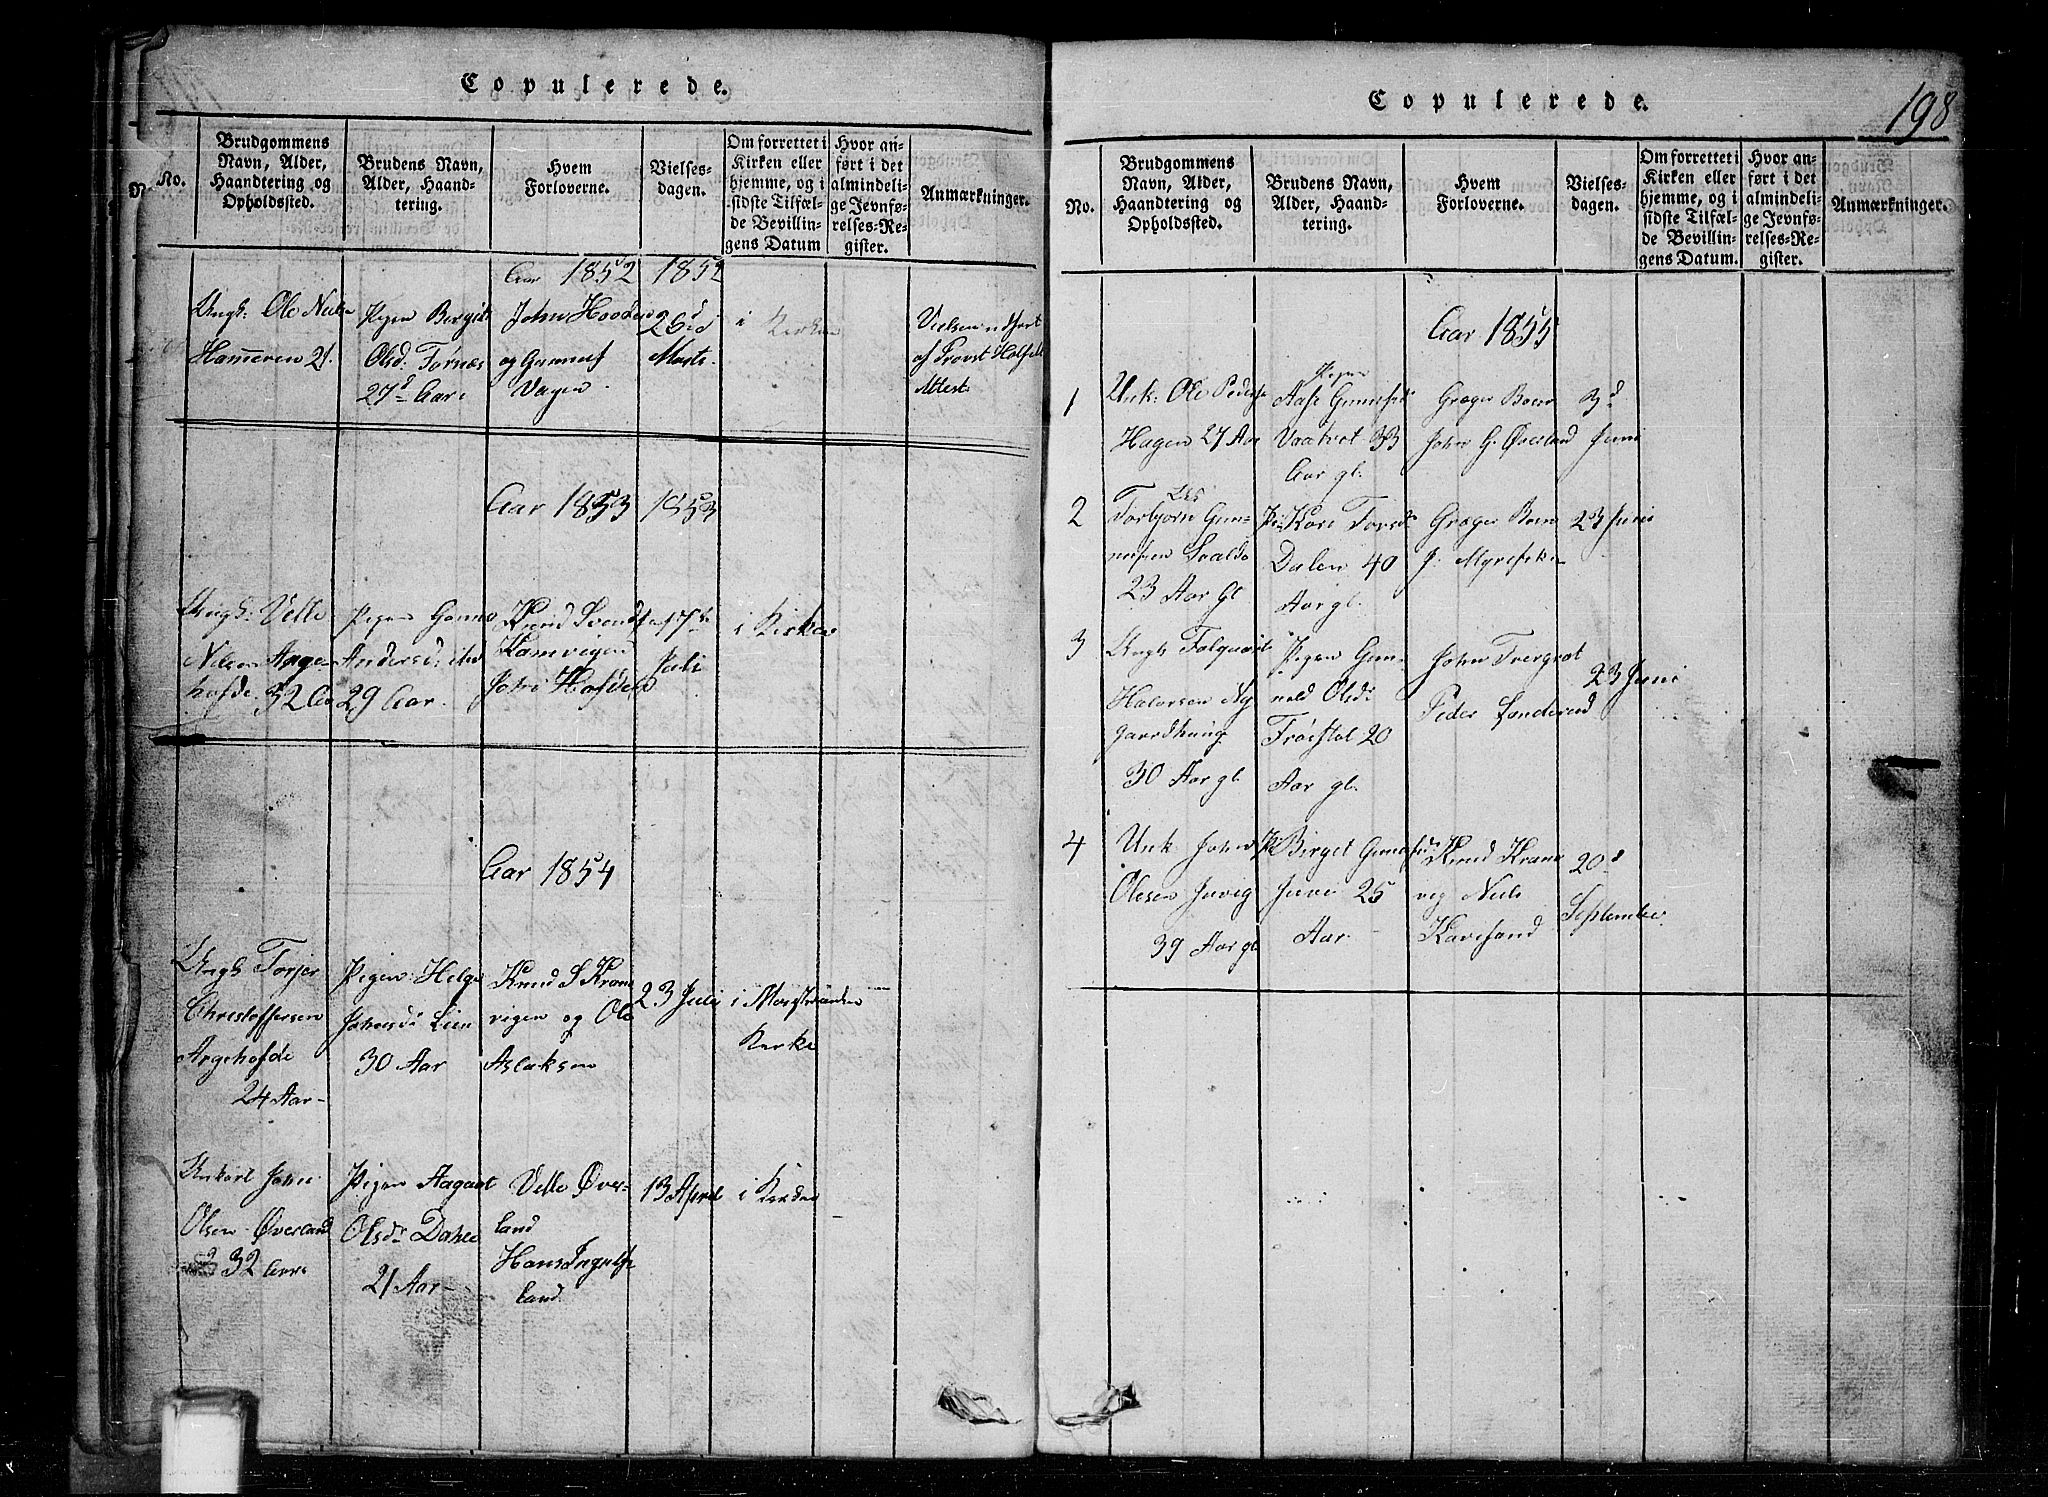 Copulerede.
No.
Brudgommens
Navn, Alder,
Haandtering og
Opholdssted.
Brudens Navn,
Alder, Haand-
tering.
Hvem
Forloverne.
Vielses-
dagen.
Om forrettet i
Kirken eller
hjemme, og i
sidste Tilfæl-
de Bevillin-
gens Datum
Hvor an-
ført i det
almindeli-
ge Jevnfø-
relses-Re-
gister.
Anmærkninger.
Aar 1852 1852
Ungk: Ole Niels
Hammeren 21.
Pigen Bergit
Olsd. Tørnæs
27d Aar
John
og Gunnuf
Vagen
26d
Marts
i Kirken
Vielsen udført
af Provst
Attest
Aar 1853 1853
Ungk: Velle
Nilsen Arge-
hofde 32 Aar
Pigen
Andersd:
29 Aar.
Knud Svends
John
17de
Juli
i Kirken
Aar 1854
Ungk Torjer
Christoffersen
Argehofde
24 Aar-
Pigen Helge
Johnsd: Lien
30 Aar
Knud S Krane
vegen og Ole
Aslaksen
23 Juli
i
Kirke
Unkarl John
Olsen Øverland
32 Aar
Pigen Aagaat
Olsd: Dahle
21 Aar-
Velle Øver-
land
Hans
land
13 April
i Kirken
Copulerede.
198
No.
Brudgommens
Navn, Alder,
Haandtering og
Opholdssted.
Brudens Navn,
Alder, Haand-
tering.
Hvem
Forloverne.
Vielses-
dagen.
Om forrettet i
Kirken eller
hjemme, og i
sidste Tilfæl-
de Bevillin-
gens Datum.
Hvor an-
ført i det
almindeli-
ge Jevnfø-
relses-Re-
gister.
Anmærkninger.
Aar 1855
1
Unk: Ole Peders
Hagen 27 Aar
Pigen
Aase Gunnufsd
33
Aar gl.
Grøger Boen
John G. Øverland
3d
Juni
2
Torbjørn Gun-
nufsen
23 Aar gl
Pi Kari Torsd
Dalen 40
Aar gl.
Grøger Boen
J.
23 Juni
3
Ungk Folqvart
Halorsen
30 Aar gl.
Pigen Gun-
nild Olsd:
Trøistol 20
Aar gl.
John
Peder
23 Juni
4
Unk John
Olesen Juvig
39 Aar gl.
Pi Birget Gunnufsd
Juvi 25
Aar-
Knud Krane
vig Niels
20d
September